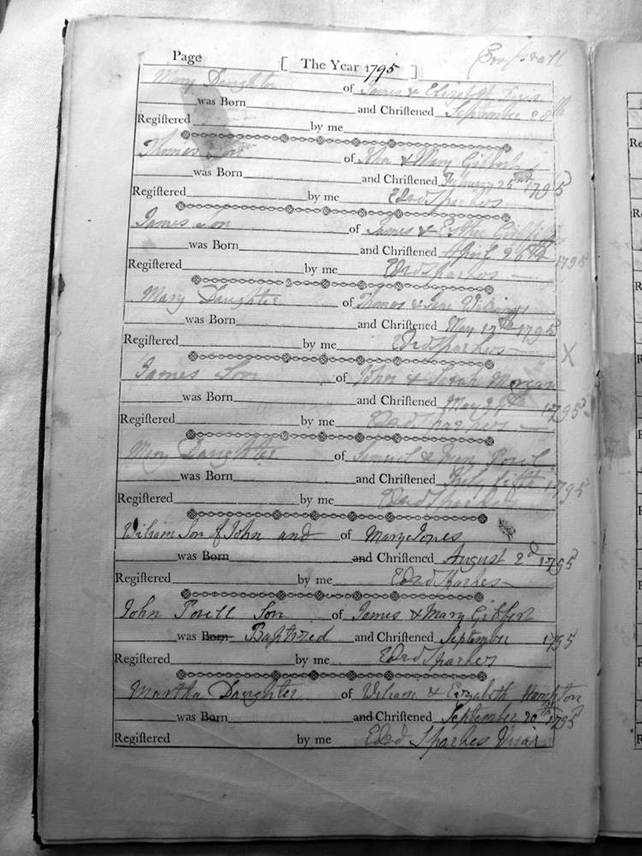 Page [ The Year 1795 ]
Mary Daughter of James & Elizabth
was Born and Chriſtened September 28th
Regiſtered by me
Thomas Son of John & Mary
was Born and Chriſtened February 25th 1795
Regiſtered by me Edrd Sparkes
James Son of James & Esther Griffiths
was Born and Chriſtened April 26th 1795
Regiſtered by me Edrd Sparkes
Mary Daughter of Thomas & Jane
was Born and Chriſtened May 17th 1795
Regiſtered by me Edrd Sparkes X
James Son of John & Sarah Morgan
was Born and Chriſtened May 1795
Regiſtered by me Edrd Sparkes
Mary Daughter of Samuel & Powil
was Born and Chriſtened July fifth 1795
Regiſtered by me Edrd Sparkes
William Son of John and of Mary Jones
was Born and Chriſtened August 2d 1795
Regiſtered by me Edrd Sparkes
John Powill Son of James & Mary Gibbert
was Born Baptized and Chriſtened September 1795
Regiſtered by me Edrd Sparkes
Martha Daughter of William & Elizabeth Hampton
was Born and Chriſtened September 20th 1795
Regiſtered by me Edrd Sparkes